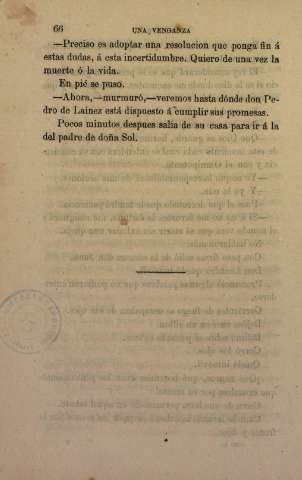 66 UNA VENGANZA
—Preciso es adoptar una resolucion que ponga fin á
estas dudas, á esta incertidumbre. Quiero de una vez la
muerte ó la vida.
En pié se puso.
—Ahora,—murmuró,—veremos hasta dónde don Pe-
dro de Lainez está dispuesto á cumplir sus promesas.
Pocos minutos despues salia de su casa para ir á la
del padre de doña Sol.